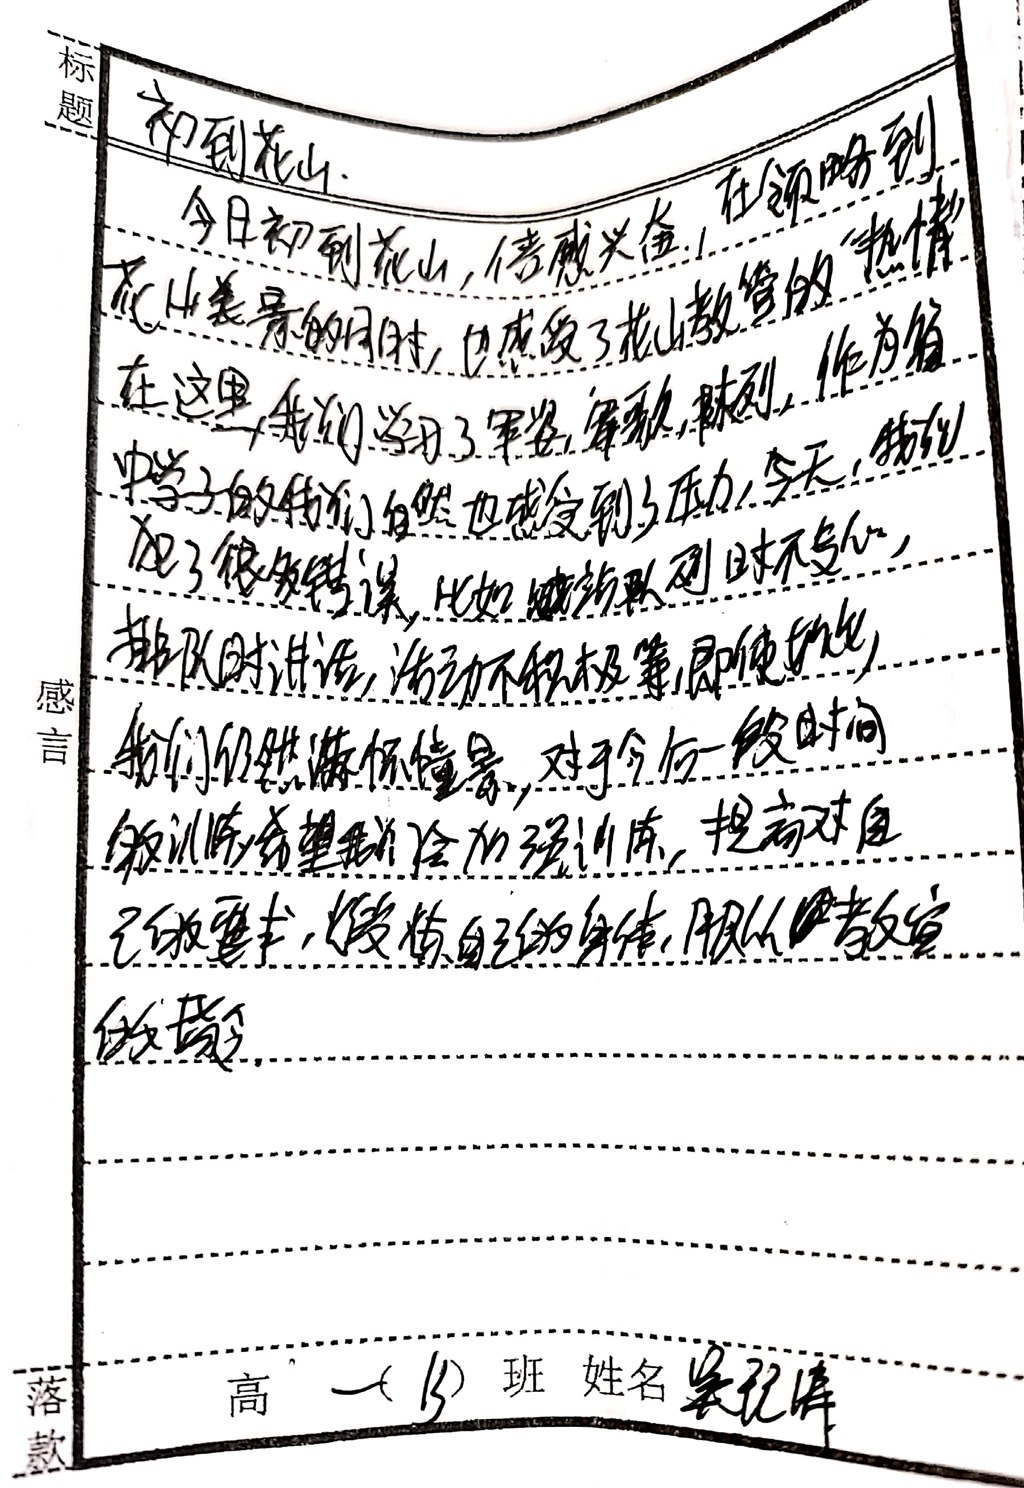 标题
初到花山.
今日初到花山,倍感兴奋,在领略到
花山美景的同时,也感受了花山教官的“热情”
在这里,我们学习了军姿,军歌,队列,作为省
中学子的我们自然也感受到了压力,今天,我们
犯了很多错误,比如站队列时不专心,
排队时讲话,活动不积极等,即使如此,
我们仍然满怀憧憬,对于今后一段时间
的训练希望我们会加强训练,提高对自
己的要求,煅炼自己的身体,服从教官
的指令.
感言
落款
高一(15)班 姓名 吴